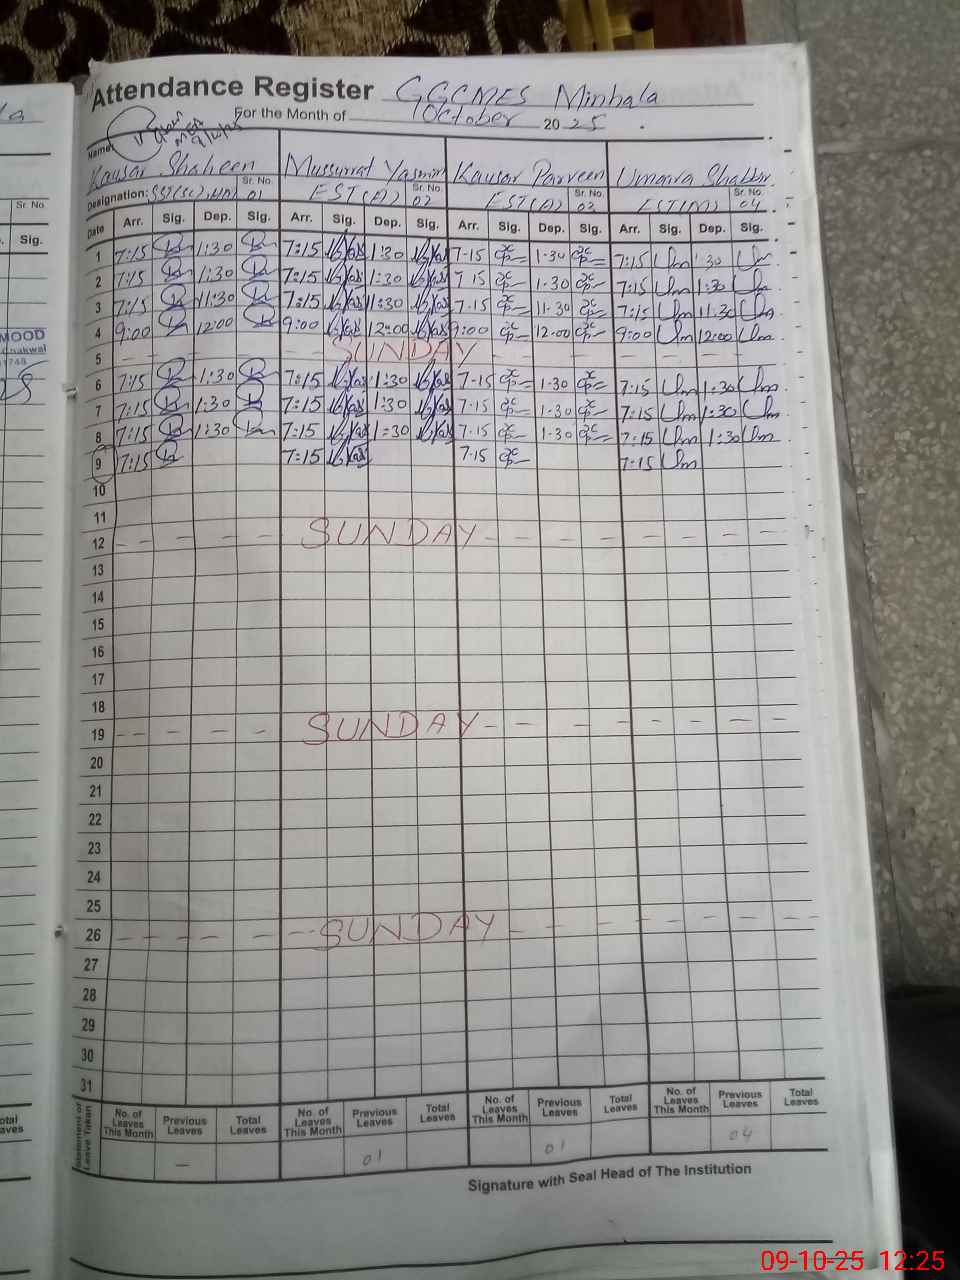 Attendance Register GGCMES Minhala
For the Month of October 2025
Name:
9/10/25
Kausar Shaheen Mussurrat Yasmin Kausar Parveen Umaira Shabbir
Designation: SST(Sc), HM Sr. No. 01 EST(A) Sr. No. 02 EST(A) Sr. No. 03 EST(M) Sr. No. 04
Date Arr. Sig. Dep. Sig. Arr. Sig. Dep. Sig. Arr. Sig. Dep. Sig. Arr. Sig. Dep. Sig.
1 7:15 1:30 7:15 1:30 7-15 1-30 7:15 1:30
2 7:15 1:30 7:15 1:30 7-15 1-30 7:15 1:30
3 7:15 11:30 7:15 11:30 7-15 11-30 7:15 11:30
4 9:00 12:00 9:00 12:00 9:00 12:00 9:00 12:00
5 SUNDAY
6 7:15 1:30 7:15 1:30 7-15 1-30 7:15 1:30
7 7:15 1:30 7:15 1:30 7-15 1-30 7:15 1:30
8 7:15 1:30 7:15 1:30 7-15 1-30 7:15 1:30
9 7:15 7:15 7-15 7:15
10
11
12 SUNDAY
13
14
15
16
17
18
19 SUNDAY
20
21
22
23
24
25
26 SUNDAY
27
28
29
30
31
Statement of Leave Taken
No. of Leaves This Month Previous Leaves Total Leaves No. of Leaves This Month Previous Leaves Total Leaves No. of Leaves This Month Previous Leaves Total Leaves No. of Leaves This Month Previous Leaves Total Leaves
— 01 01 04
Signature with Seal Head of The Institution
Sr. No.
Sig.
MOOD
Chakwal
09-10-25 12:25